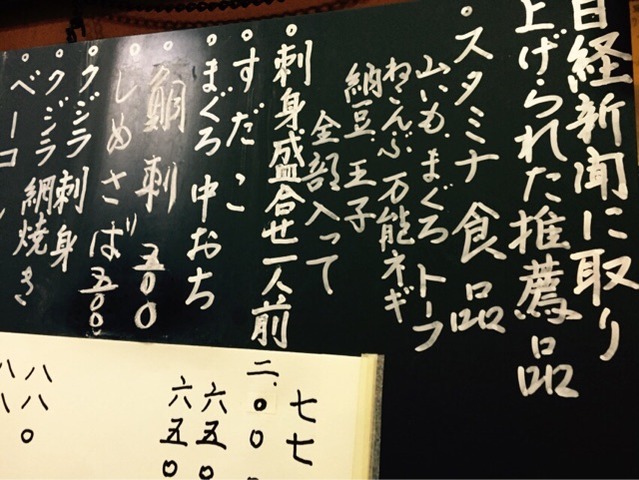 日経新聞に取り
上げられた推薦品
。スタミナ食品
山いも、まぐろ トーフ
ねこんぶ 万能ネギ
納豆、玉子
全部入って
七七
。刺身盛合せ一人前
二.〇〇
。すだこ
六五〇
。まぐろ中おち
六五〇
。鯛刺 五〇〇
。しめさば 五〇〇
。クジラ刺身
八八〇
。クジラ網焼き
八八
。ベーコ